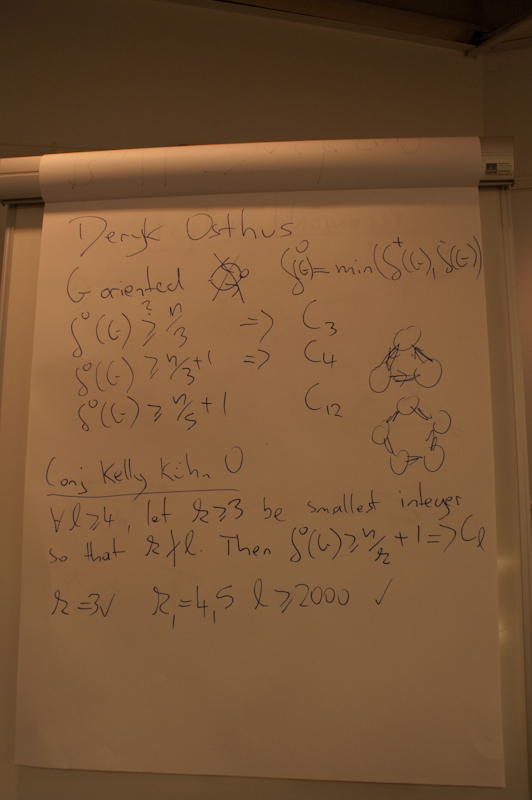 Deryk Osthus
G oriented δ⁰(G) = min(δ⁺(G), δ⁻(G))
δ⁰(G) ≥? n/3 => C₃
δ⁰(G) ≥ n/3 + 1 => C₄
δ⁰(G) ≥ n/5 + 1 C₁₂
Conj Kelly Kühn O
∀ l ≥ 4, let k ≥ 3 be smallest integer
so that k ∤ l. Then δ⁰(G) ≥ n/k + 1 => Cₗ
k = 3 ✓ k, = 4, 5 l ≥ 2000 ✓